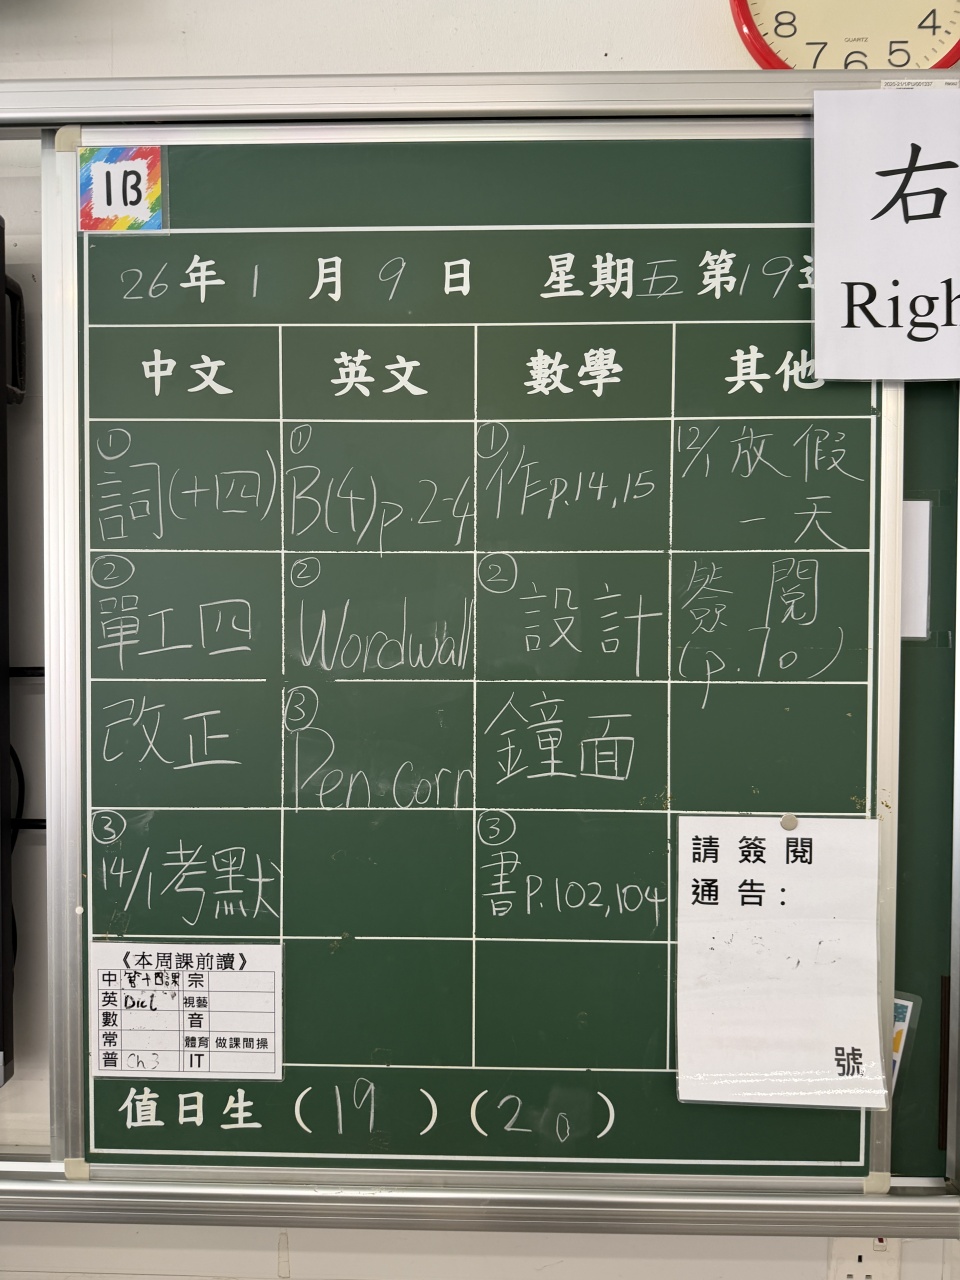 8 7 6 5 4
QUARTZ
右
Righ
1B
26年1月9日 星期五 第19週
中文 英文 數學 其他
① 詞(十四)
② 單工四
改正
③ 14/1考默
① B(4)p.2-4
② Wordwall
③ Pen. Corr
① 作p.14,15
② 設計
鐘面
③ 書P.102,104
12/1放假
一天
簽閱
(p.70)
《本周課前讀》
中 第十四課 宗
英 Dict 視藝
數 音
常 體育 做課間操
普 Ch 3 IT
請簽閱
通告:
號
值日生(19)(20)